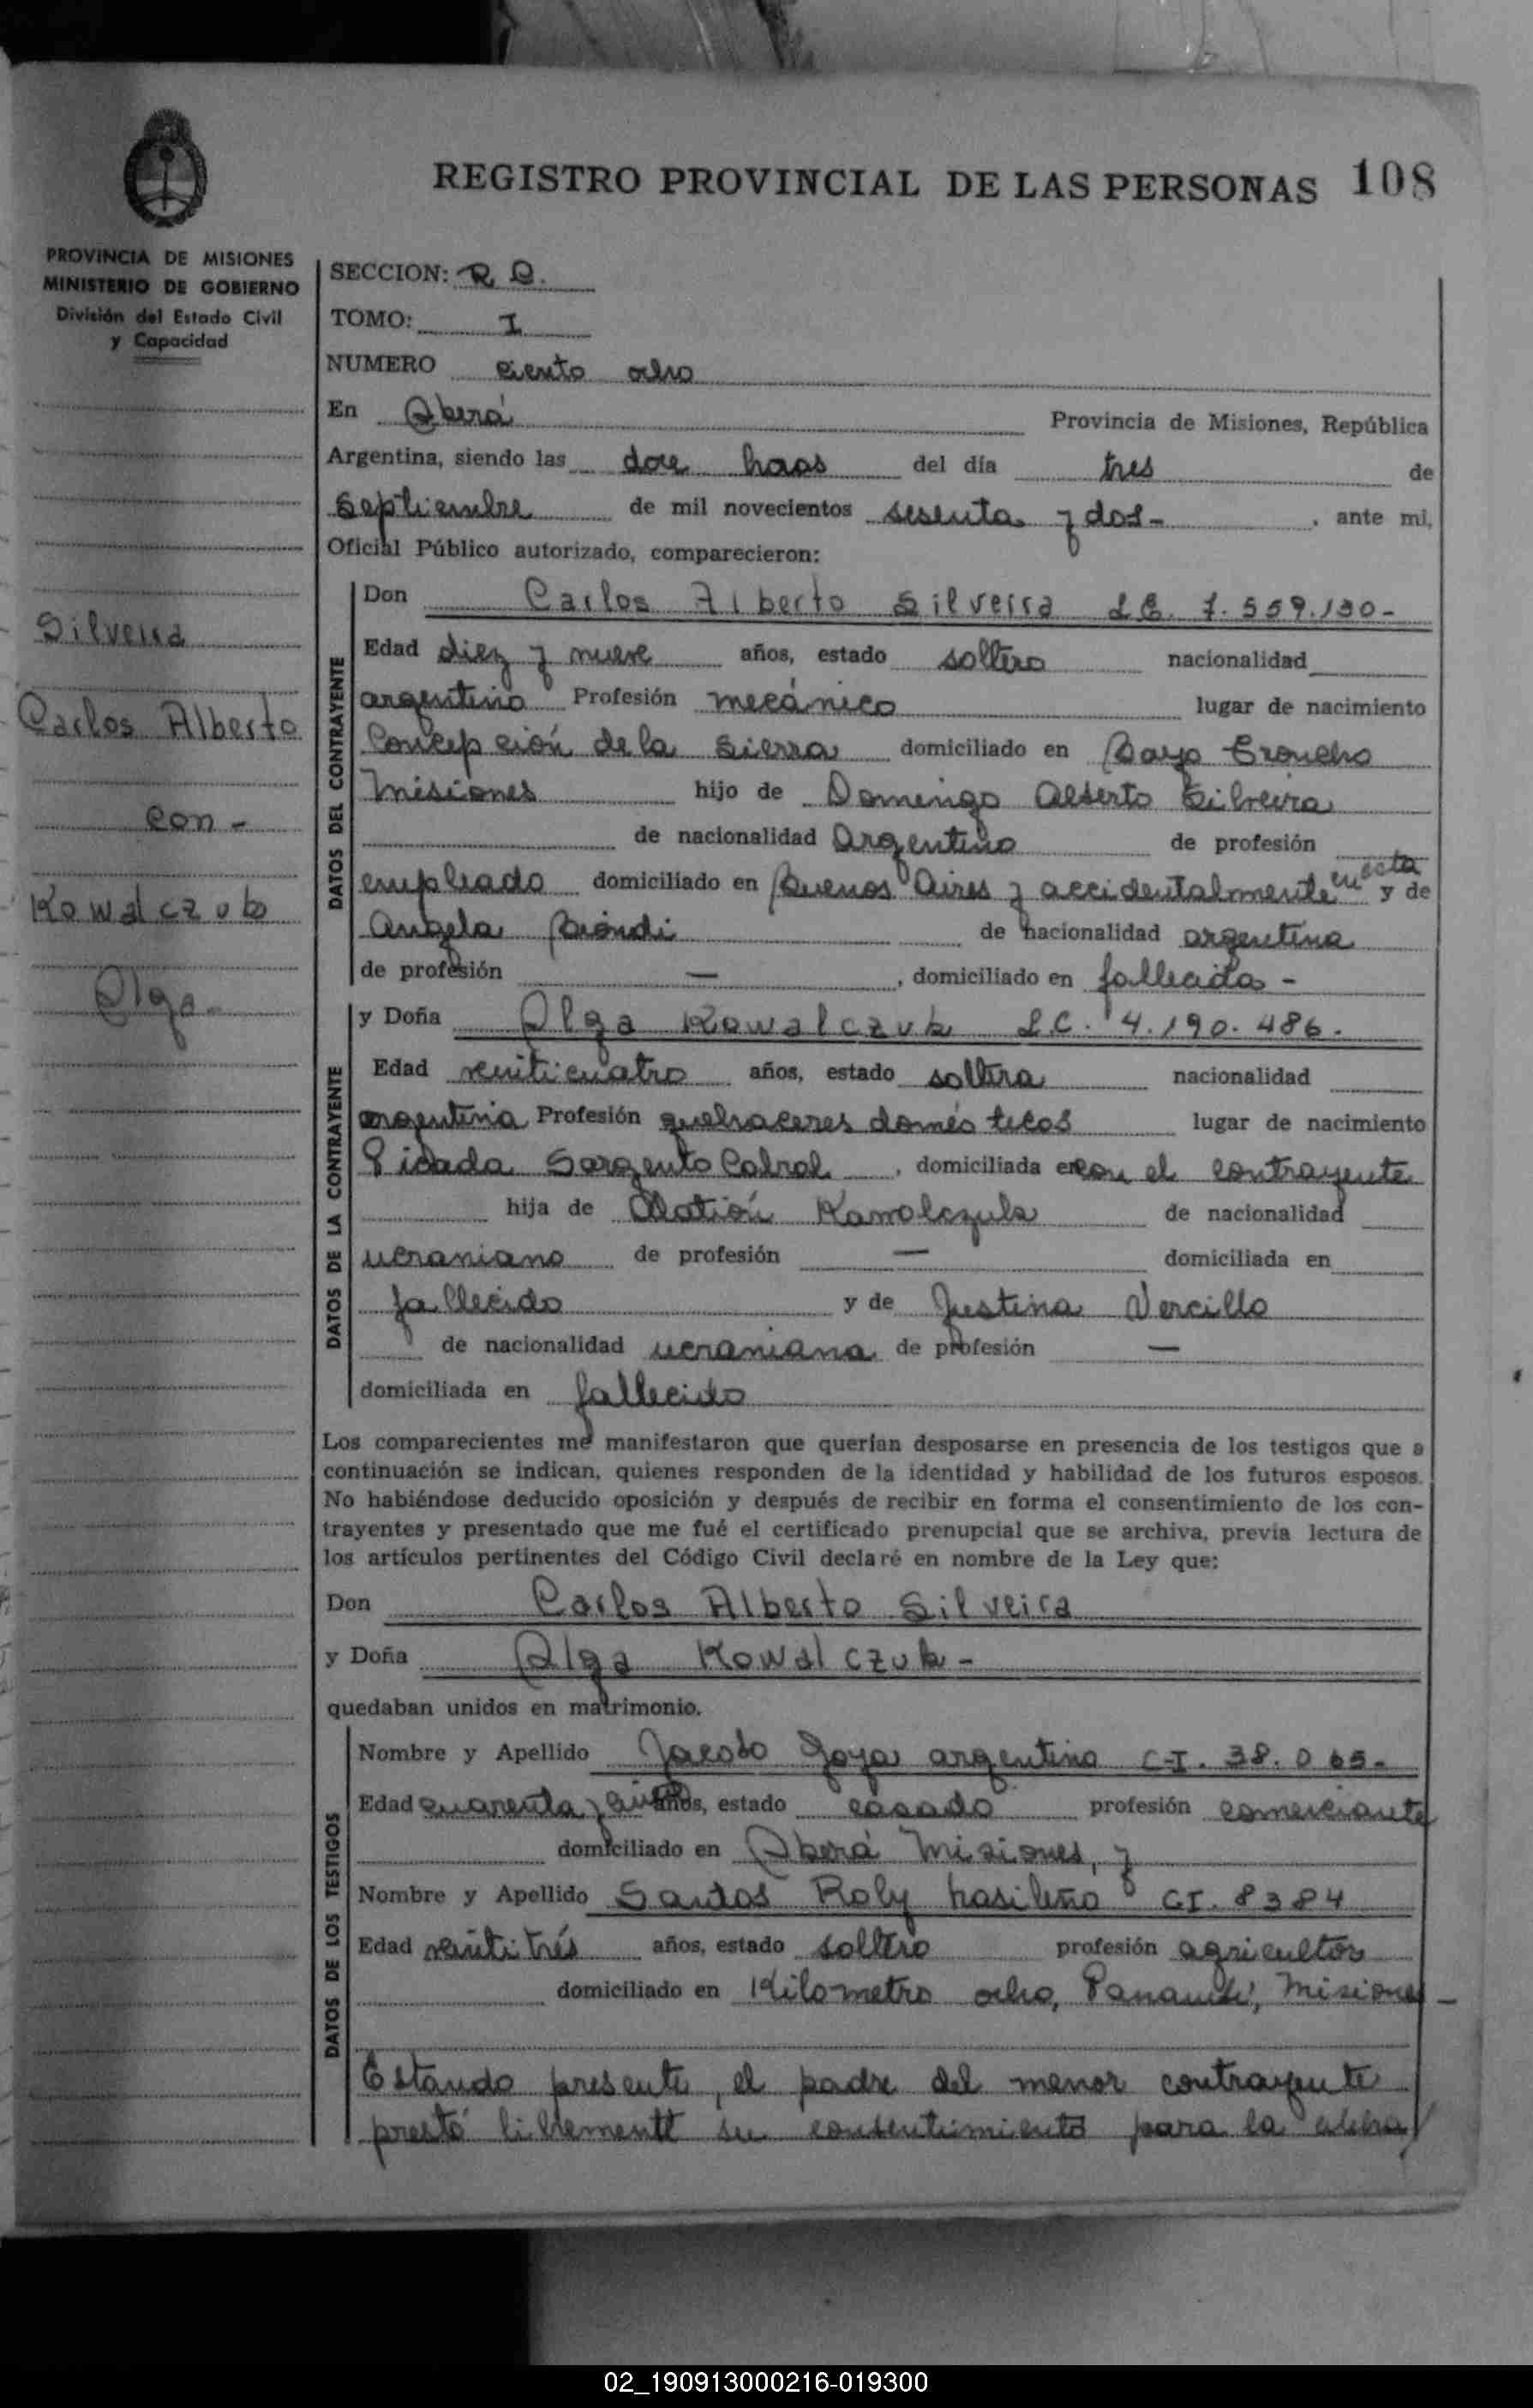 REGISTRO PROVINCIAL DE LAS PERSONAS 108
PROVINCIA DE MISIONES
MINISTERIO DE GOBIERNO
División del Estado Civil
y Capacidad
Silveira
Carlos Alberto
con -
Kowalczuk
Olga -
SECCION: R B.
TOMO: I
NUMERO ciento ocho
En Oberá Provincia de Misiones, República
Argentina, siendo las doce horas del día tres de
septiembre de mil novecientos sesenta y dos - , ante mi,
Oficial Público autorizado, comparecieron:
DATOS DEL CONTRAYENTE
Don Carlos Alberto Silveira L E. 7.559.130 -
Edad diez y nueve años, estado soltero nacionalidad
argentino Profesión mecánico lugar de nacimiento
Concepción de la Sierra domiciliado en Bayo
Misiones hijo de Domingo Alberto Silveira
de nacionalidad Argentino de profesión
empleado domiciliado en Buenos Aires y accidentalmente en esta y de
Angela Biondi de nacionalidad argentina
de profesión — , domiciliado en fallecida -
DATOS DE LA CONTRAYENTE
y Doña Olga Kowalczuk L.C. 4.190.486.
Edad veinticuatro años, estado soltera nacionalidad
argentina Profesión quehaceres domésticos lugar de nacimiento
Picada Sargento Cabral , domiciliada en con el contrayente
hija de de nacionalidad
ucraniano de profesión — domiciliada en
fallecido y de Justina Vercillo
de nacionalidad ucraniana de profesión —
domiciliada en fallecido
Los comparecientes me manifestaron que querían desposarse en presencia de los testigos que a
continuación se indican, quienes responden de la identidad y habilidad de los futuros esposos.
No habiéndose deducido oposición y después de recibir en forma el consentimiento de los con-
trayentes y presentado que me fué el certificado prenupcial que se archiva, previa lectura de
los artículos pertinentes del Código Civil declaré en nombre de la Ley que:
Don Carlos Alberto Silveira
y Doña Olga Kowalczuk -
quedaban unidos en matrimonio.
DATOS DE LOS TESTIGOS
Nombre y Apellido Jacobo Goya argentino C-I. 38.065 -
Edad cuarenta y años, estado casado profesión comerciante
domiciliado en Oberá Misiones, y
Nombre y Apellido Santos Roly brasileño CI. 8384
Edad veintitrés años, estado soltero profesión agricultor
domiciliado en Kilometro ocho, Panambí, Misiones -
Estando presente, el padre del menor contrayente
prestó libremente su consentimiento para la
02_190913000216-019300